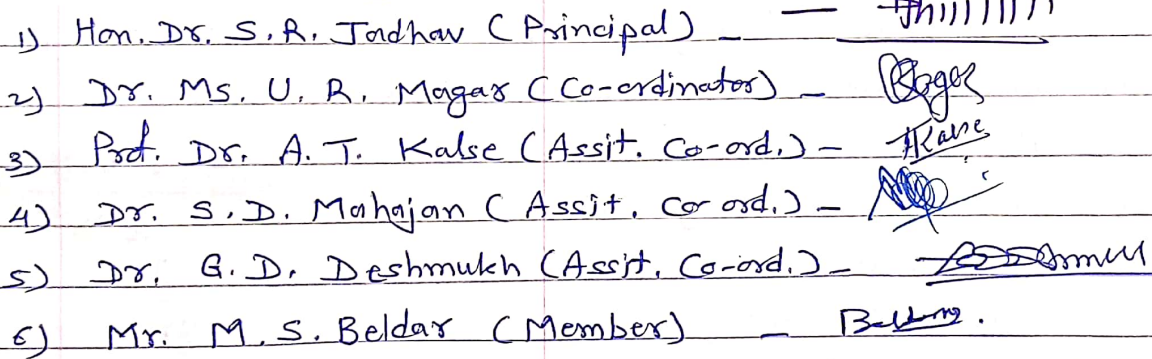 1) Hon. Dr. S. R. Jadhav (Principal) -
2) Dr. Ms. U. R. Magar (Co-ordinator) -
3) Prof. Dr. A. T. Kalse (Assit. Co-ord.) - Kalse
4) Dr. S. D. Mahajan (Assit. Co-ord.) -
5) Dr. G. D. Deshmukh (Assit. Co-ord.) -
6) Mr. M. S. Beldar (Member) -